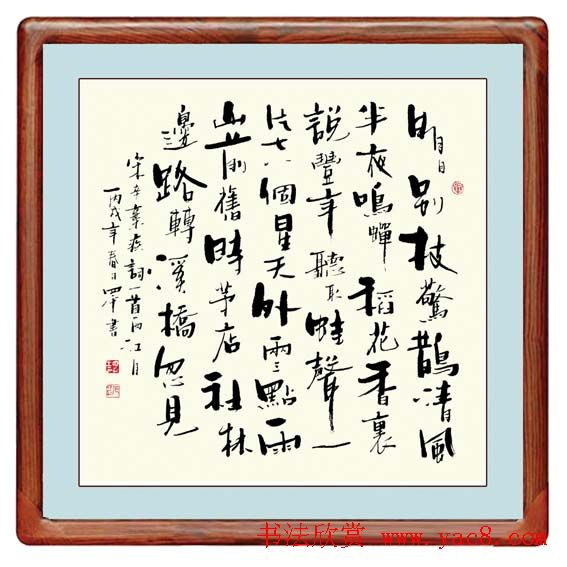 明月別枝驚鵲清風
半夜鳴蟬稻花香裏
說豐年聽取蛙聲一
片七八個星天外兩三點雨
山前舊時茅店社林
邊路轉溪橋忽見
宋辛棄疾詞一首西江月
丙戌年春日書
书法欣赏 www.yac8.com